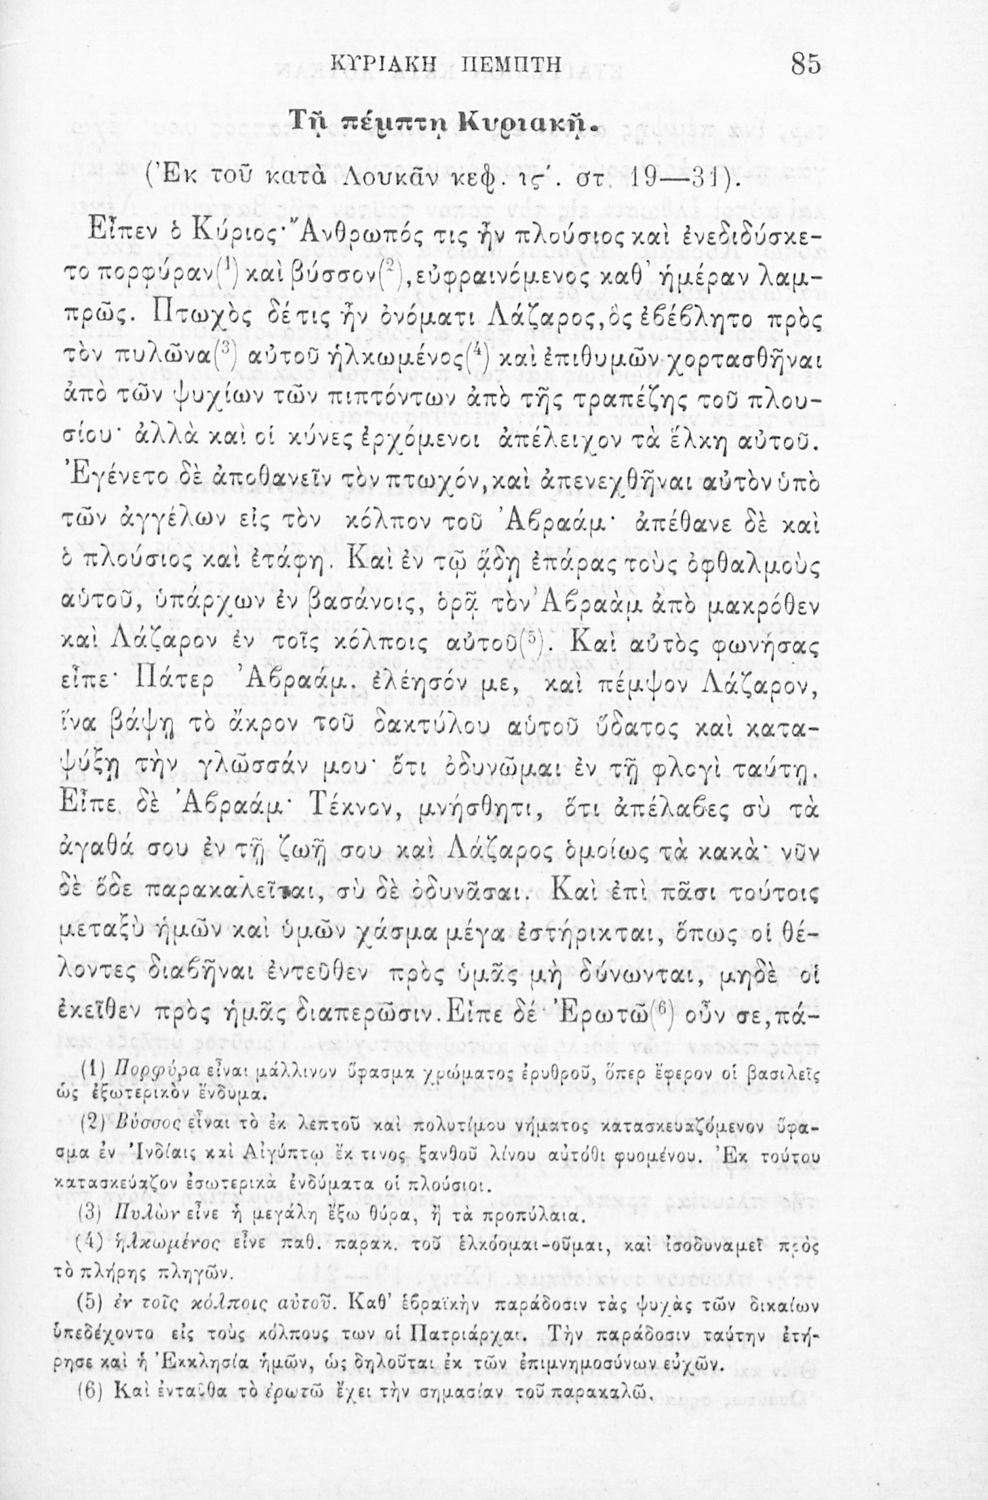 ΚΥΡΙΑΚΗ ΠΕΜΠΤΗ 85
Τῇ πέμπτῃ Κυριακῇ.
(Ἐκ τοῦ κατὰ Λουκᾶν κεφ. ιςʹ. στ. 19—31).
Εἶπεν ὁ Κύριος· Ἄνθρωπός τις ἦν πλούσιος καὶ ἐνεδιδύσκε-
το πορφύραν(1) καὶ βύσσον(2), εὐφραινόμενος καθ' ἡμέραν λαμ-
πρῶς. Πτωχὸς δέ τις ἦν ὀνόματι Λάζαρος, ὃς ἐβέβλητο πρὸς
τὸν πυλῶνα(3) αὐτοῦ ἡλκωμένος(4) καὶ ἐπιθυμῶν χορτασθῆναι
ἀπὸ τῶν ψυχίων τῶν πιπτόντων ἀπὸ τῆς τραπέζης τοῦ πλου-
σίου· ἀλλὰ καὶ οἱ κύνες ἐρχόμενοι ἀπέλειχον τὰ ἕλκη αὐτοῦ.
Ἐγένετο δὲ ἀποθανεῖν τὸν πτωχόν, καὶ ἀπενεχθῆναι αὐτὸν ὑπὸ
τῶν ἀγγέλων εἰς τὸν κόλπον τοῦ Ἀβραάμ· ἀπέθανε δὲ καὶ
ὁ πλούσιος καὶ ἐτάφη. Καὶ ἐν τῷ ᾅδῃ ἐπάρας τοὺς ὀφθαλμοὺς
αὑτοῦ, ὑπάρχων ἐν βασάνοις, ὁρᾷ τὸν Ἀβραὰμ ἀπὸ μακρόθεν
καὶ Λάζαρον ἐν τοῖς κόλποις αὐτοῦ(5). Καὶ αὐτὸς φωνήσας
εἶπε· Πάτερ Ἀβραάμ, ἐλέησόν με, καὶ πέμψον Λάζαρον,
ἵνα βάψῃ τὸ ἄκρον τοῦ δακτύλου αὑτοῦ ὕδατος καὶ κατα-
ψύξῃ τὴν γλῶσσάν μου· ὅτι ὀδυνῶμαι ἐν τῇ φλογὶ ταύτῃ.
Εἶπε δὲ Ἀβραάμ· Τέκνον, μνήσθητι, ὅτι ἀπέλαβες σὺ τὰ
ἀγαθά σου ἐν τῇ ζωῇ σου καὶ Λάζαρος ὁμοίως τὰ κακά· νῦν
δὲ ὅδε παρακαλεῖται, σὺ δὲ ὀδυνᾶσαι. Καὶ ἐπὶ πᾶσι τούτοις
μεταξὺ ἡμῶν καὶ ὑμῶν χάσμα μέγα ἐστήρικται, ὅπως οἱ θέ-
λοντες διαβῆναι ἐντεῦθεν πρὸς ὑμᾶς μὴ δύνωνται, μηδὲ οἱ
ἐκεῖθεν πρὸς ἡμᾶς διαπερῶσιν. Εἶπε δέ· Ἐρωτῶ(6) οὖν σε, πά-
(1) Πορφύρα εἶναι μάλλινον ὕφασμα χρώματος ἐρυθροῦ, ὅπερ ἔφερον οἱ βασιλεῖς
ὡς ἐξωτερικὸν ἔνδυμα.
(2) Βύσσος εἶναι τὸ ἐκ λεπτοῦ καὶ πολυτίμου νήματος κατασκευαζόμενον ὕφα-
σμα ἐν Ἰνδίαις καὶ Αἰγύπτῳ ἔκ τινος ξανθοῦ λίνου αὐτόθι φυομένου. Ἐκ τούτου
κατασκεύαζον ἐσωτερικὰ ἐνδύματα οἱ πλούσιοι.
(3) Πυλὼν εἶνε ἡ μεγάλη ἔξω θύρα, ἢ τὰ προπύλαια.
(4) ἡλκωμένος εἶνε παθ. παρακ. τοῦ ἑλκόομαι-οῦμαι, καὶ ἰσοδυναμεῖ πρὸς
τὸ πλήρης πληγῶν.
(5) ἐν τοῖς κόλποις αὐτοῦ. Καθ' ἑβραϊκὴν παράδοσιν τὰς ψυχὰς τῶν δικαίων
ὑπεδέχοντο εἰς τοὺς κόλπους των οἱ Πατριάρχαι. Τὴν παράδοσιν ταύτην ἐτή-
ρησε καὶ ἡ Ἐκκλησία ἡμῶν, ὡς δηλοῦται ἐκ τῶν ἐπιμνημοσύνων εὐχῶν.
(6) Καὶ ἐνταῦθα τὸ ἐρωτῶ ἔχει τὴν σημασίαν τοῦ παρακαλῶ.